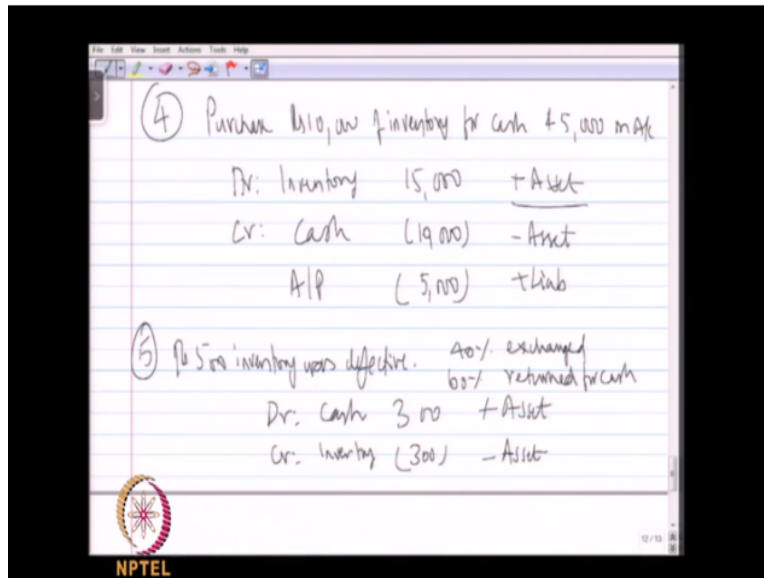 File Edit View Insert Actions Tools Help
④ Purchase Rs10,000 of inventory for cash & 5,000 on A/c
Dr: Inventory 15,000 + Asset
Cr: Cash (10,000) - Asset
A/P (5,000) + Liab
⑤ Rs 500 inventory was defective. 40% exchanged
60% returned for cash
Dr: Cash 300 + Asset
Cr: Inventory (300) - Asset
12/13
NPTEL